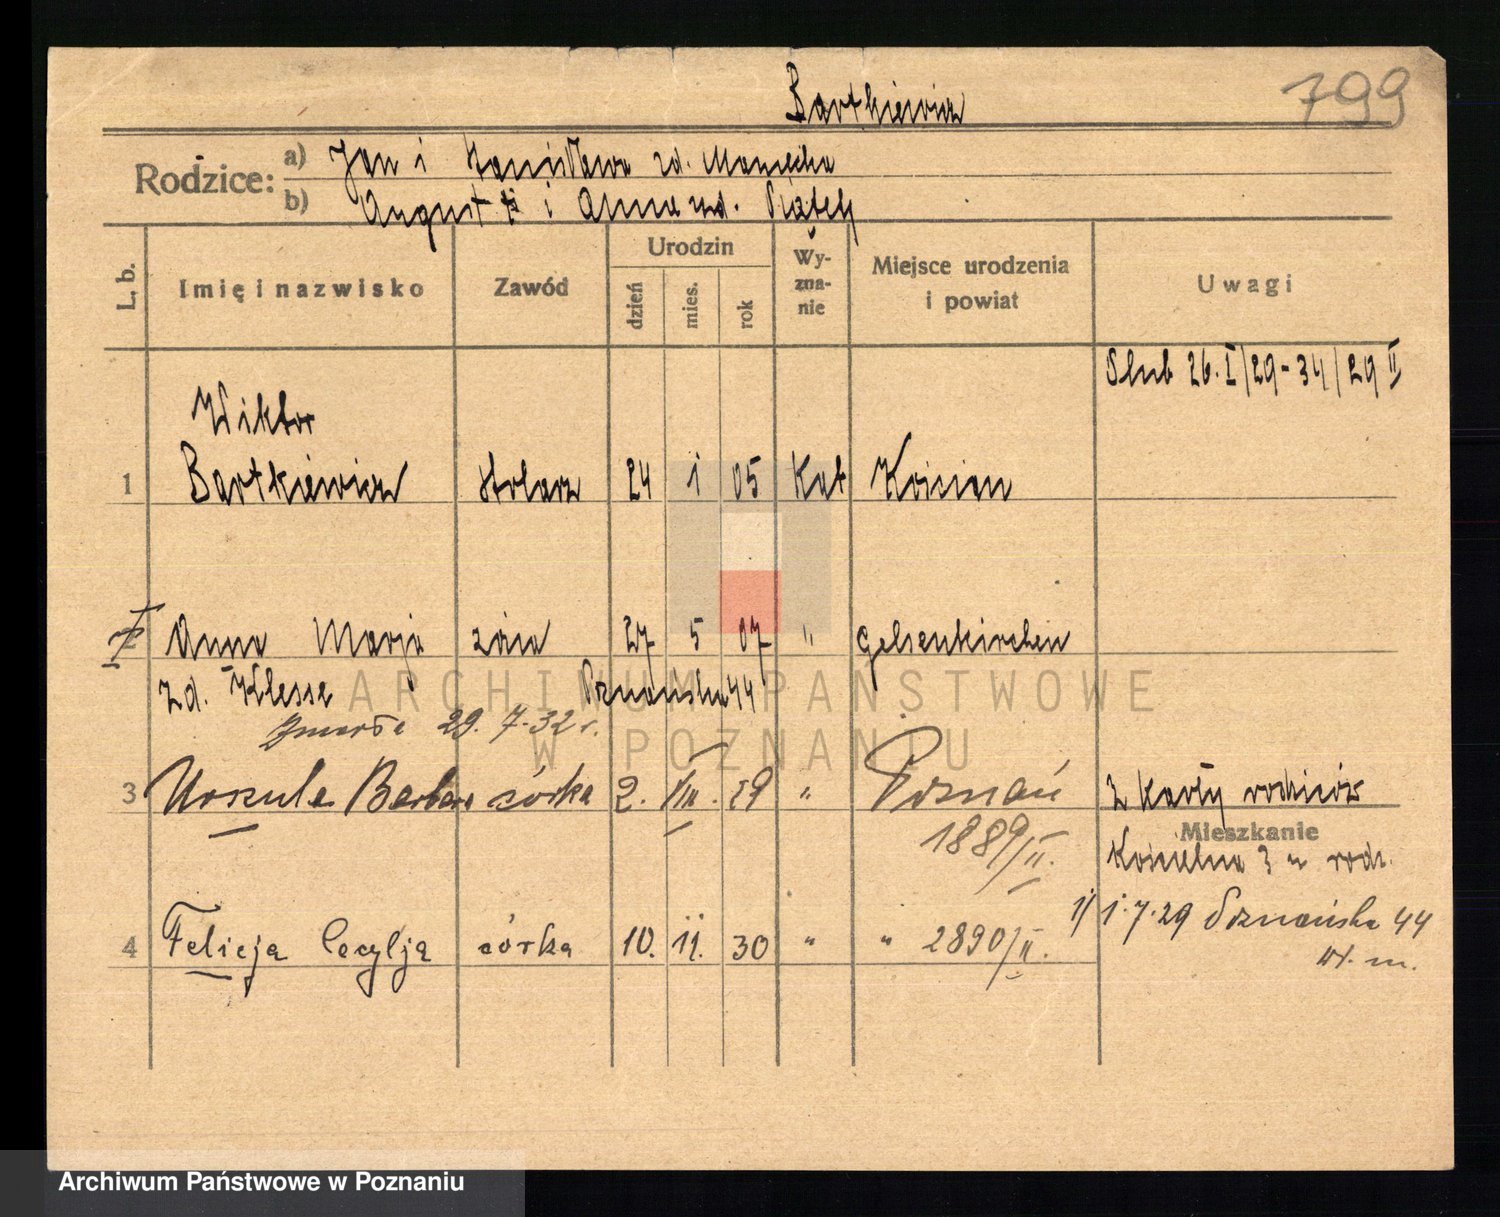 Bartkiewicz
799
Rodzice:
a) Jan i Stanisława zd. Maniecka
b) August i Anna zd. Piątek
L. b.
Imię i nazwisko
Zawód
Urodzin
dzień
mies.
rok
Wy-
zna-
nie
Miejsce urodzenia
i powiat
Uwagi
Slub 26. I/29 - 34/29 II
Wiktor
1 Bartkiewicz stolarz 24 1 05 Kat Kościan
Anna Marja żona 27 5 07 " Gelsenkirchen
zd. Klesse Poznańska 44
Zmarła 29. 7. 32 r.
3 Urszula Barbara córka 2. VIII. 29 " Poznań Z Karty rodziców
1889/II.
Mieszkanie
Kościelna 3 u rodz.
1/ 1.7.29 Poznańska 44
4 Felicja Cecylja córka 10. 11. 30 " " 2890/II.
w. m.
ARCHIWUM PAŃSTWOWE
W POZNANIU
Archiwum Państwowe w Poznaniu